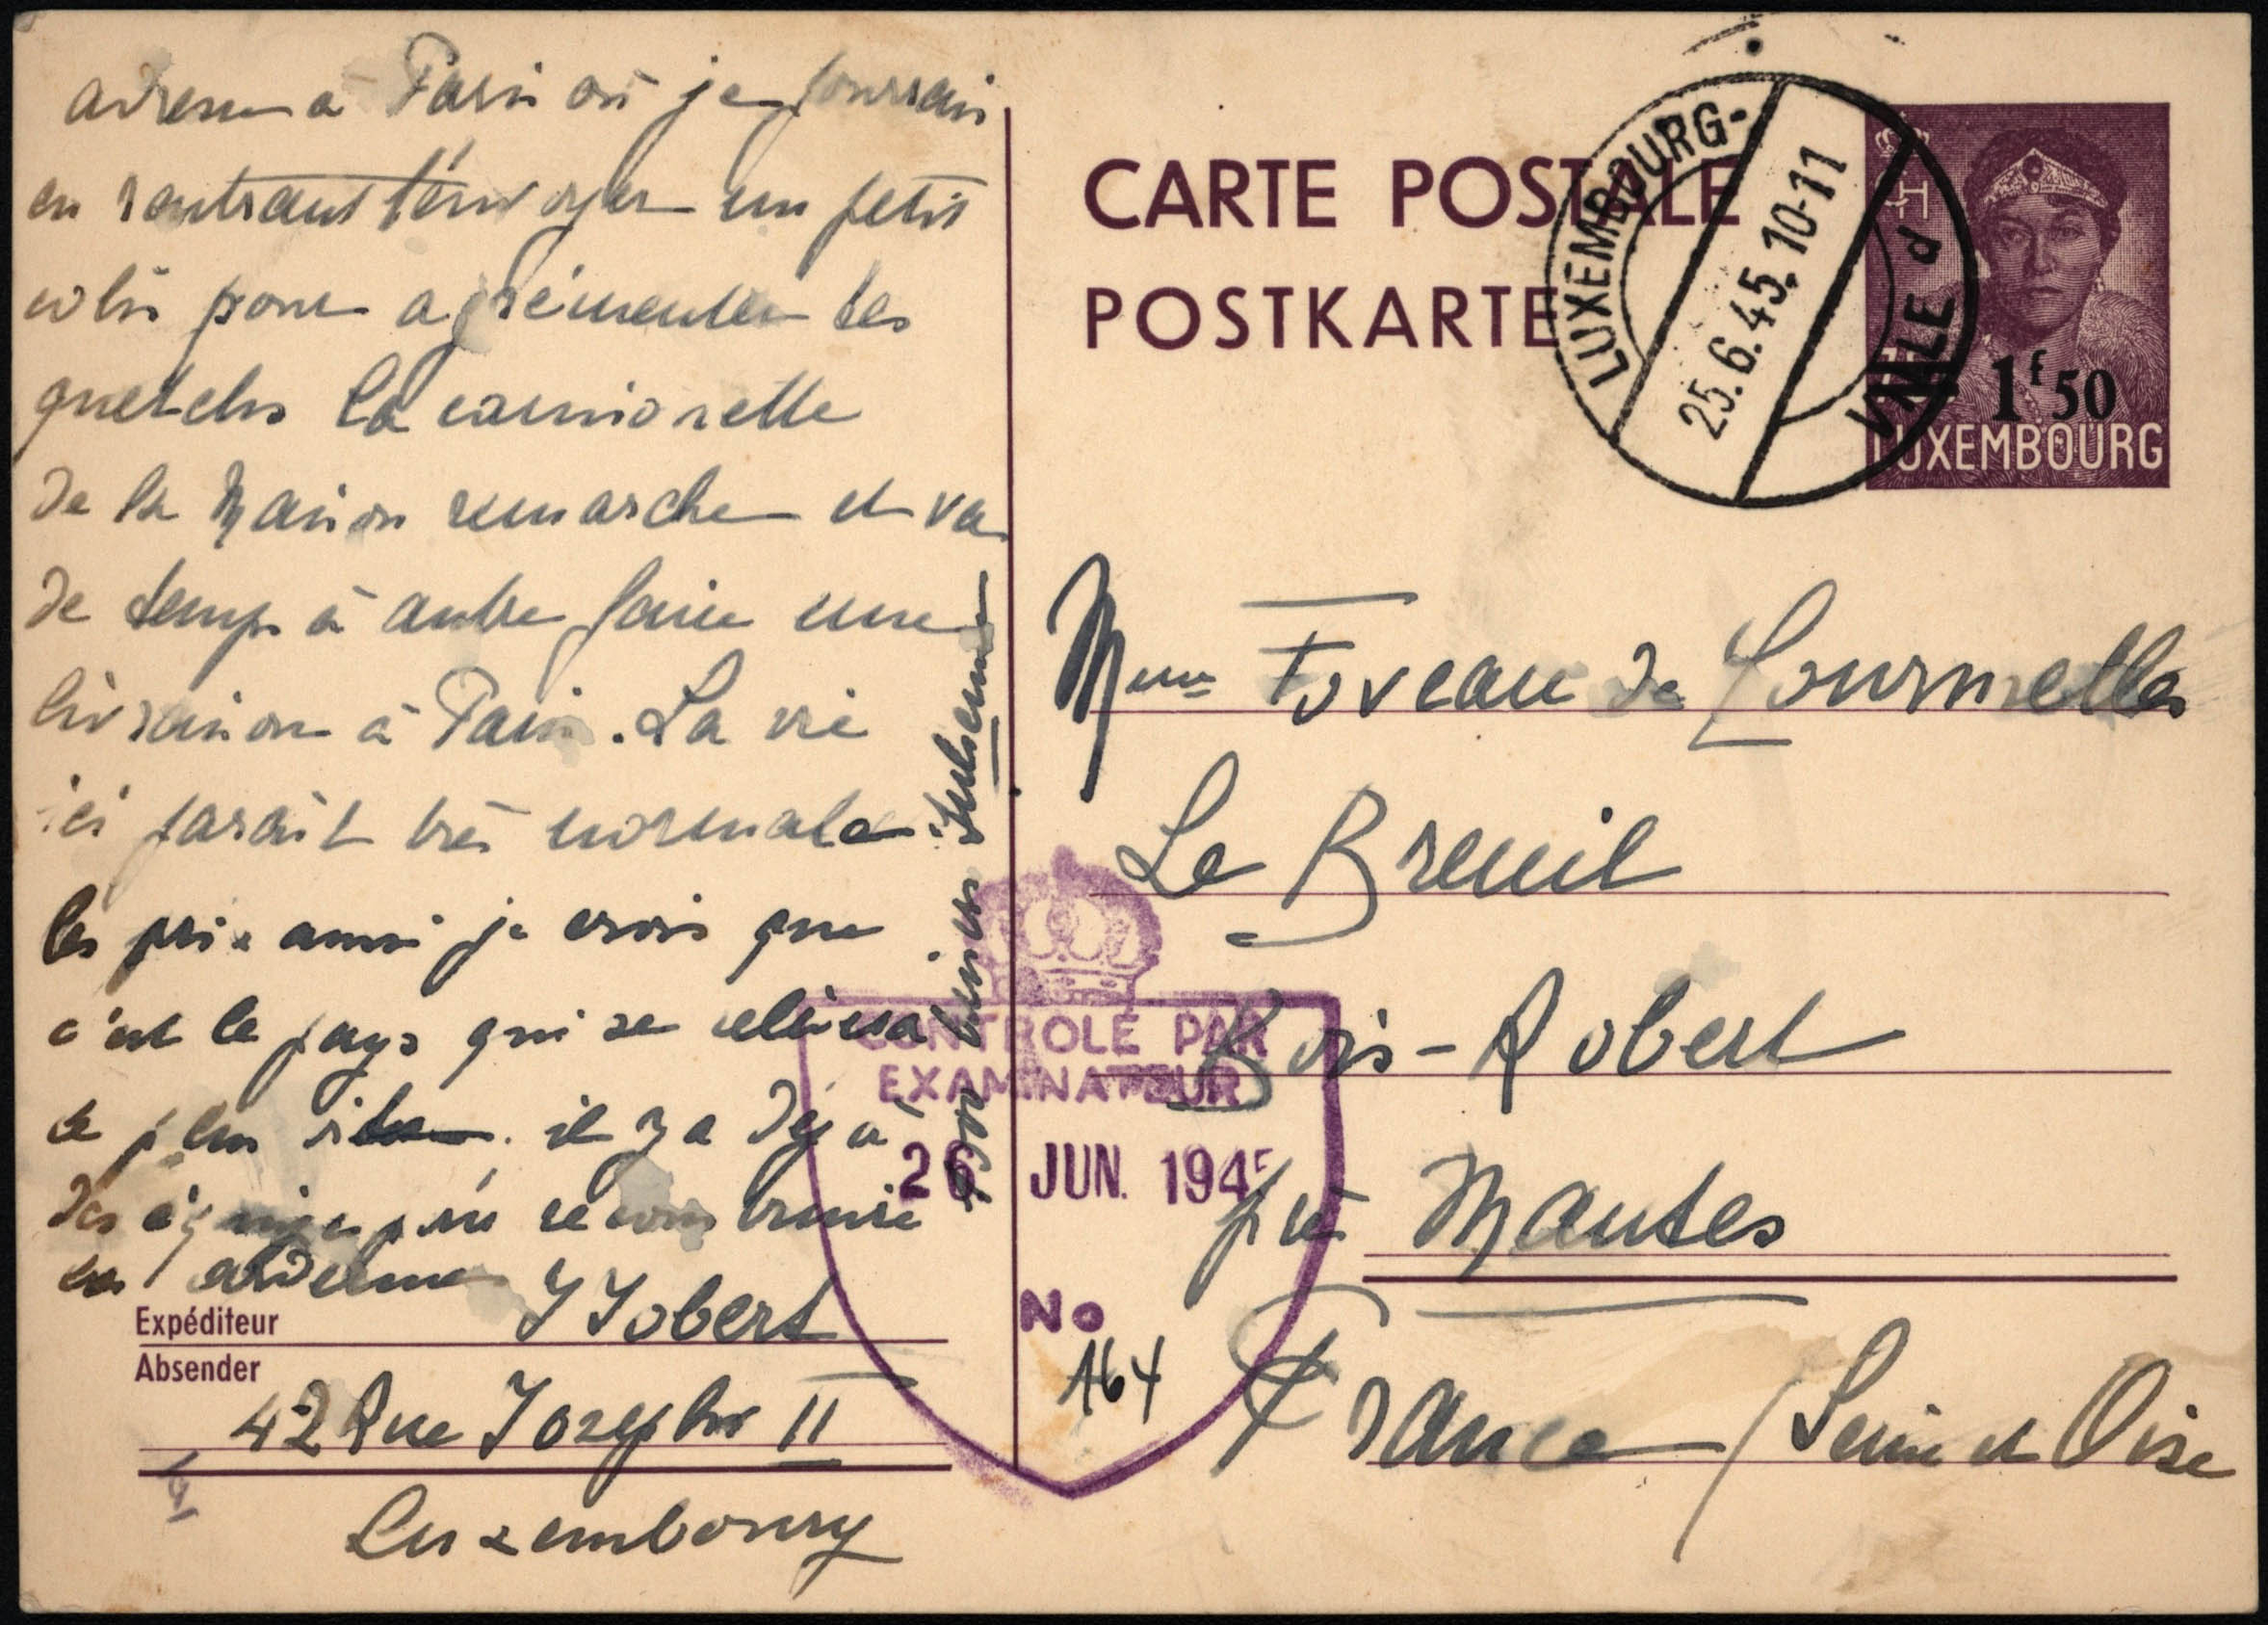 adresse à Paris où je pourrais
en rentrant t'envoyer un petit
colis pour agrémenter tes
quetches la camionette
de la Maison remarche et va
de temps à autre faire une
livraison à Paris. La vie
ici paraît très normale
les prix aussi je crois que
c'est le pays qui se relèvera
le plus vite. il y a déjà
des équipes pour reconstruire
les ardennes
pour tenir
J Jobert
Expéditeur
Absender
42 Rue Joseph II
Luxembourg
CARTE POSTALE
POSTKARTE
LUXEMBOURG-
VILLE d
25.6.45. 10-11
1f50
LUXEMBOURG
Mme Foveau de Courmelles
Le Breuil
Bois-Robert
près Mantes
France (Seine et Oise
CONTROLE PAR
EXAMINATEUR
26 JUN. 1945
No
164